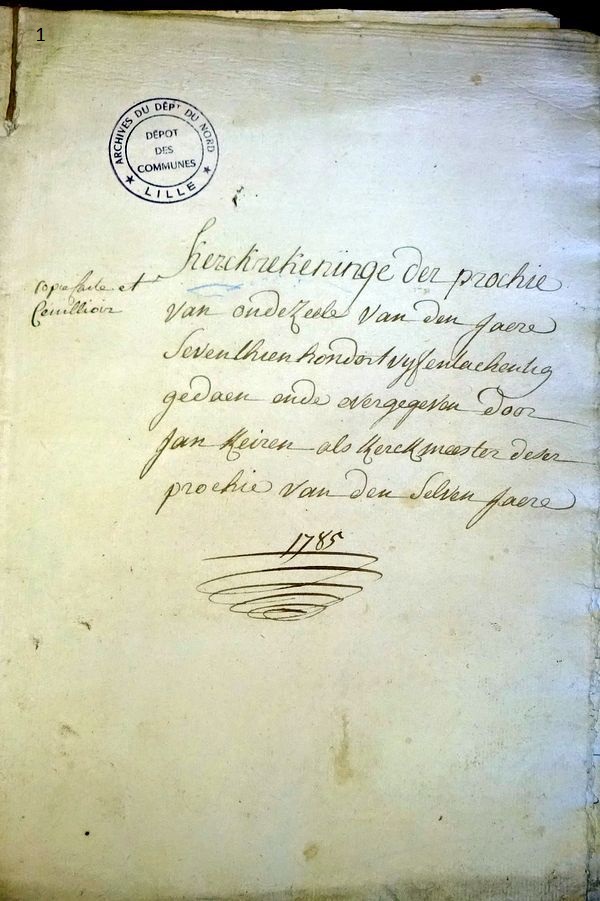 1
ARCHIVES DU DÉPT DU NORD
DÉPOT
DES
COMMUNES
LILLE
Kerckrekeninge der prochie
copie faite et
van oudezeele van den jaere
seventhien hondert vyfentachentig
gedaen ende overgegeven door
jan Keiren als Kerckmeester deser
prochie van den selven jaere
1785